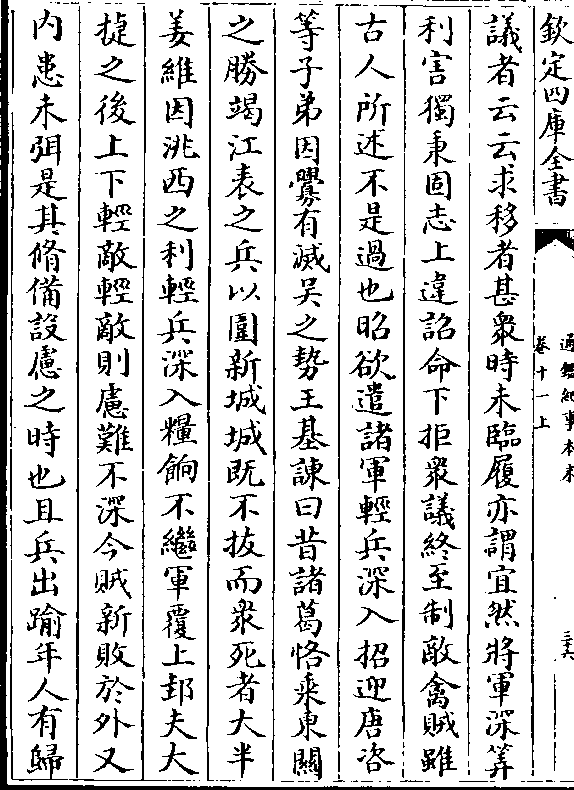 欽定四庫全書
通鑑紀事本末
卷十一上
三六
議者云云求移者甚衆時未臨履亦謂宜然將軍深筭
利害獨秉固志上違詔命下拒衆議終至制敵禽賊雖
古人所述不是過也昭欲遣諸軍輕兵深入招迎唐咨
等子弟因釁有滅吴之勢王基諫曰昔諸葛恪乗東關
之勝竭江表之兵以圍新城城既不拔而衆死者大半
姜維因洮西之利輕兵深入糧餉不繼軍覆上邽夫大
捷之後上下輕敵輕敵則慮難不深今賊新敗於外又
内患未弭是其脩備設慮之時也且兵出踰年人有歸